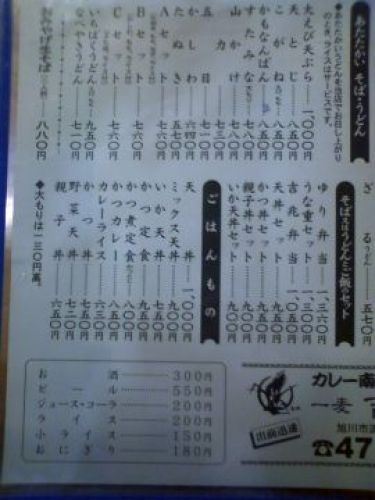 あたたかい そば・うどん
◆あたたかいうどんを当店でお召し上がり
のとき、ライスはサービスです。
大えび天ぷら……一、〇〇〇円
天とじ……八五〇円
こがね……八五〇円
かもなんばん……八五〇円
すたみな……七八〇円
山かけ……七八〇円
力……七三〇円
五目……七一〇円
かしわ……六四〇円
たぬき……五七〇円
Aセット……七六〇円
Bセット……七六〇円
Cセット……七六〇円
いちばくうどん……九五〇円
なべやきうどん……七一〇円
おみやげ生そば……八八〇円
ざる……五七〇円
そば又はうどんとご飯のセット
ゆり弁当……一、三六〇円
うな重セット……一、三〇〇円
吉兆弁当……一、〇五〇円
天丼セット……九五〇円
かつ丼セット……九五〇円
親子丼セット……九〇〇円
いか天丼セット……九〇〇円
ごはんもの
天丼……一、〇〇〇円
ミックス天丼……九〇〇円
いか天丼……七五〇円
かつ定食……九五〇円
かつ煮定食……九五〇円
かつカレー……八五〇円
カレーライス……六三〇円
かつ丼……七五〇円
野菜天丼……七二〇円
親子丼……六五〇円
◆大もりは一三〇円高。
お酒 300円
ビール 550円
ジュース・コーラ 200円
ライス 200円
小ライス 150円
おにぎり 180円
カレー南
一麦
旭川市
出前迅速
☎47